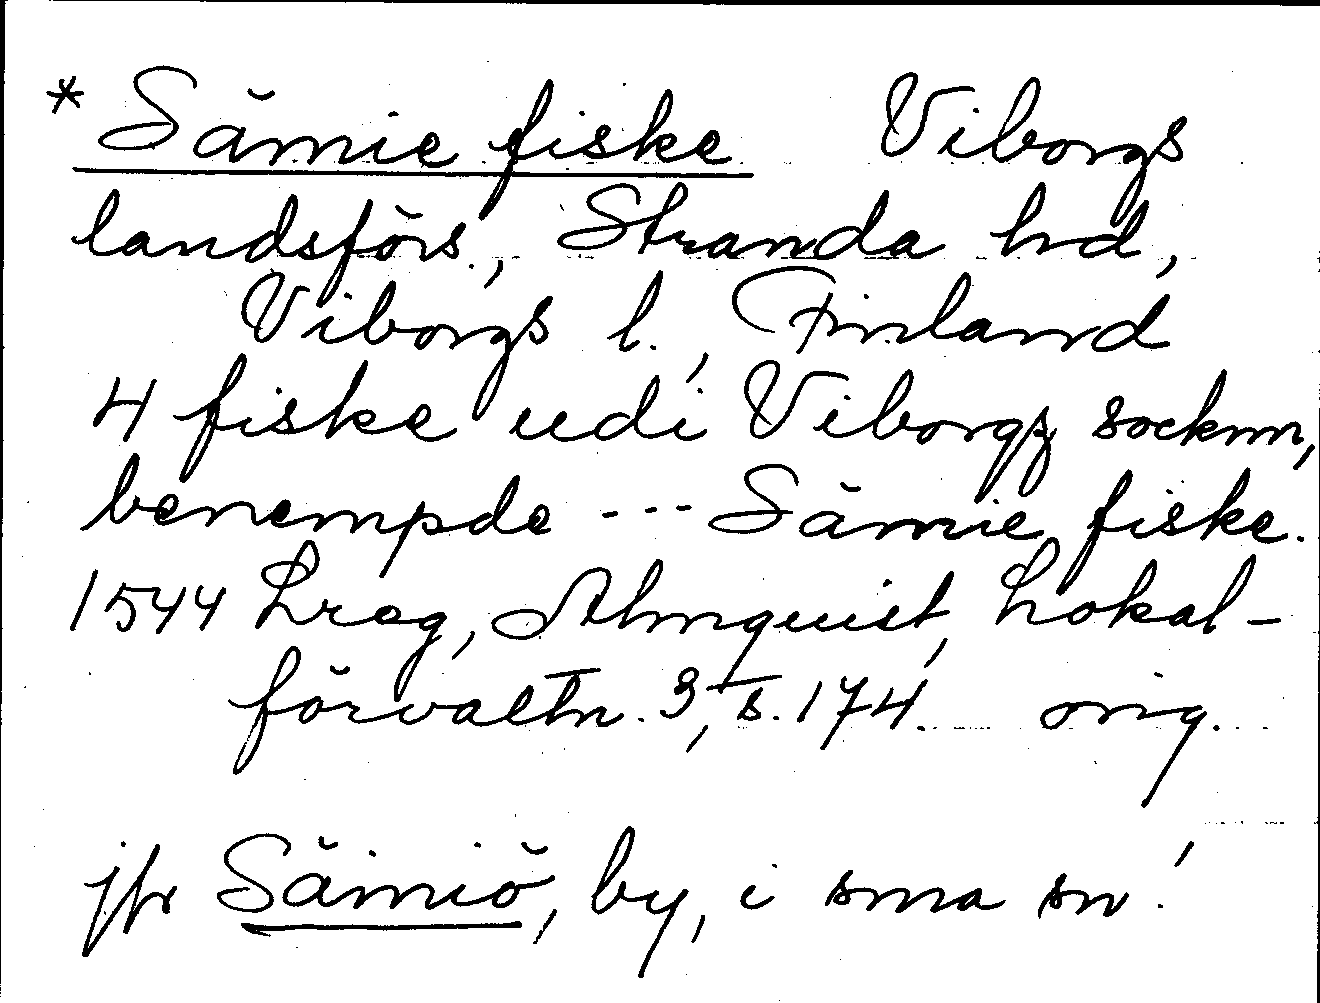 * Sämie fiske Viborgs
landsförs., Stranda hd,
Viborgs l., Finland
4 fiske udi Viborgz socknn,
benempde --- Sämie fiske.
1544 Lreg, Almquist, Lokal-
förvaltn. 3, s. 174. orig.
jfr Sämiö, by, i sma sn!